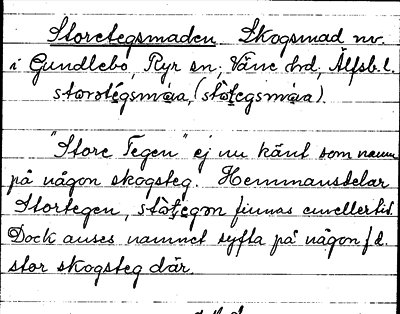 Storetegsmaden Skogsmad nv.
i Gundlebo, Ryr sn; Väne hd, Älfsb. l.
storetégsmàa, (stòţegsmàa).
"Store Tegen" ej nu känt som namn
på någon skogsteg. Hemmansdelar
Stortegen, stòţegən finnas emellertid.
Dock anses namnet syfta på någon f.d.
stor skogsteg där.